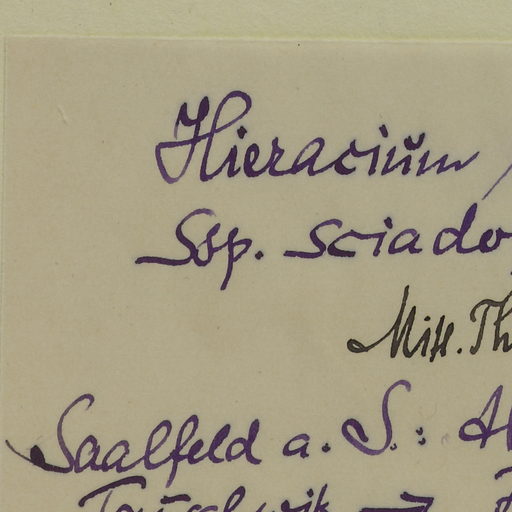 Hieracium
Ssp. sciado
Mitt. Th
Saalfeld a. S.: